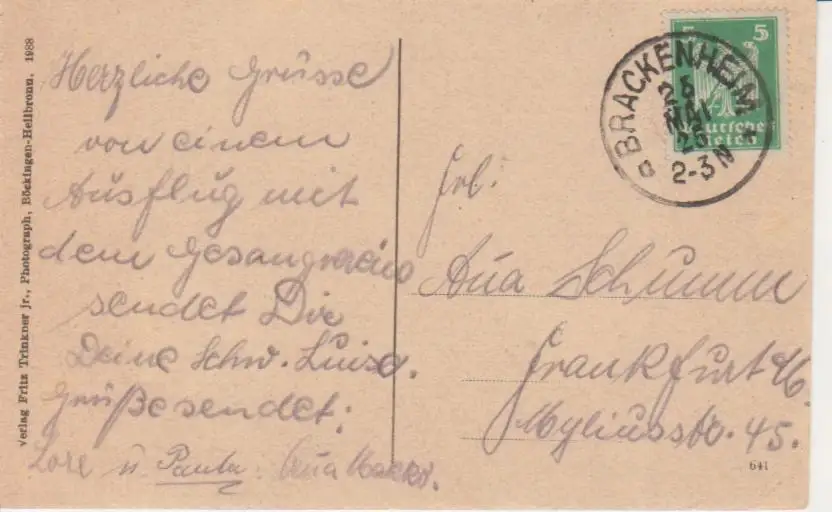 Herzliche Grüsse
von einem
Ausflug mit
dem Gesangverein
sendet Dir
Deine Schw. Luise.
Grüße sendet:
Lore u. Paula.
Verlag Fritz Trinkner jr., Photograph, Böckingen-Heilbronn. 1988
5 5
Deutsches
Reich
BRACKENHEIM
MAI
2-3 N
Frl.
Schumm
Frankfurt a/M.
Myliusstr. 45.
641